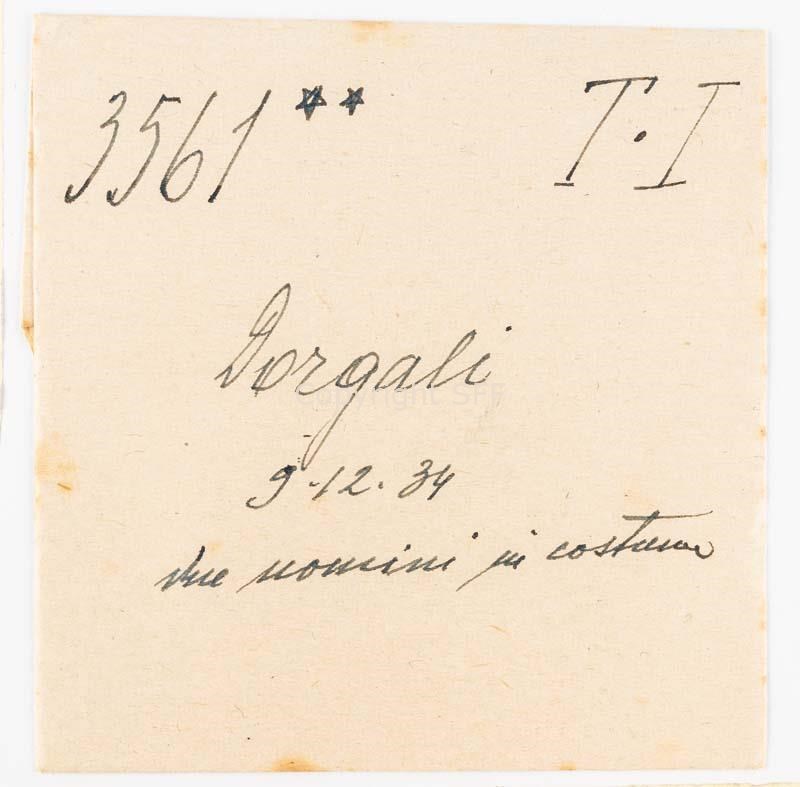 3561 ** T.I
Dorgali
9.12.34
due uomini in costume
Copyright SFF